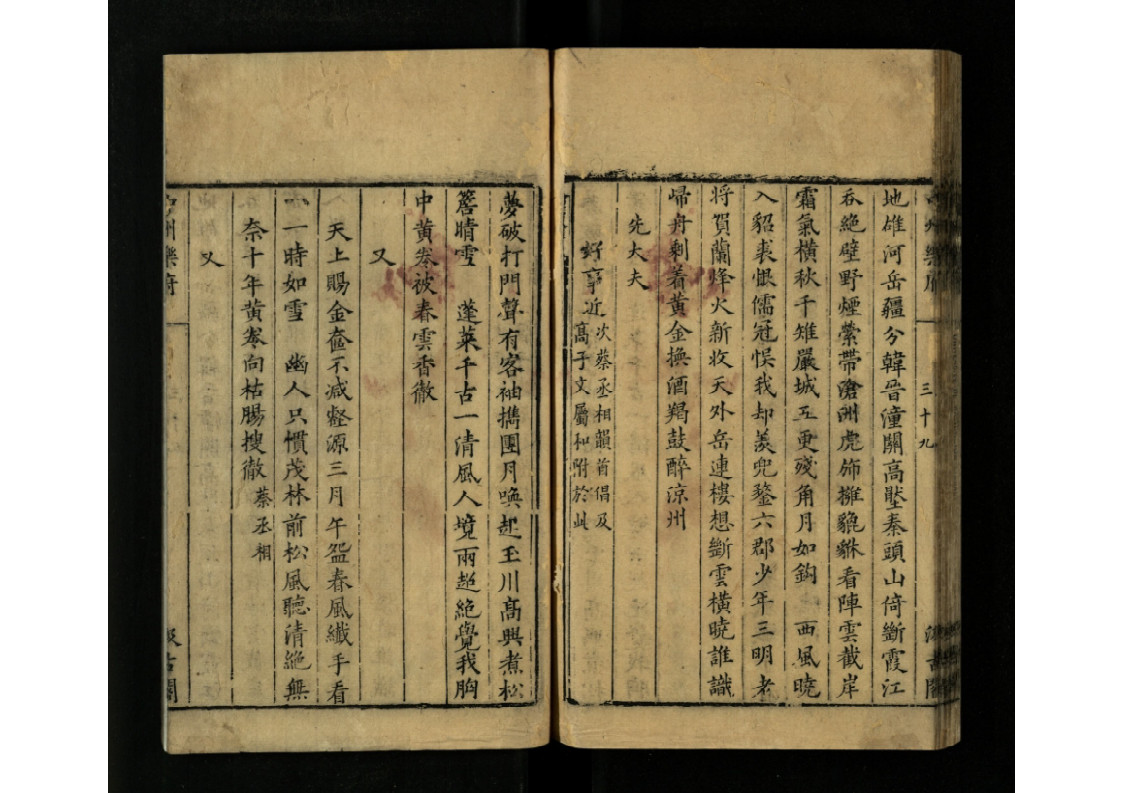 中州樂府
三十九
汲古閣
地雄河岳疆分韓晉潼關高壓秦頭山倚斷霞江
吞絕壁野煙縈帶滄洲虎斾擁貔貅看陣雲截岸
霜氣橫秋千雉嚴城五更殘角月如鈎　西風曉
入貂裘恨儒冠悞我却羨兜鍪六郡少年三明老
将賀蘭烽火新收天外岳連樓想斷雲橫曉誰識
歸舟剩着黄金換酒羯鼓醉涼州
先大夫
好事近
次蔡丞相韻首倡及
髙子文屬和附於此
夢破打門聲有客袖擕團月喚起玉川髙興煮松
簷晴雪　蓬萊千古一清風人境兩超絶覺我胸
中黄卷被春雲香徹
又
天上賜金奩不减壑源三月午盌春風纖手看
一時如雪　幽人只慣茂林前松風聽清絶無
奈十年黄卷向枯腸搜徹
蔡丞相
又
中州樂府
汲古閣